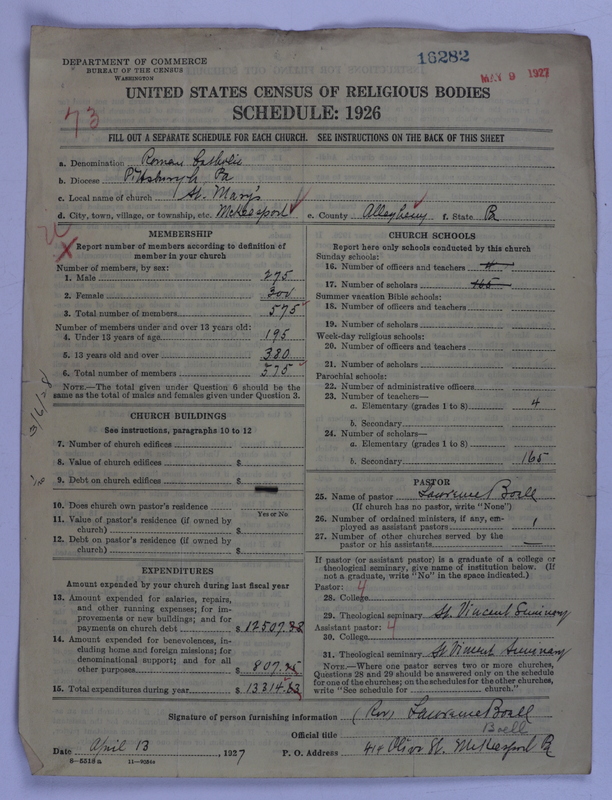 16282
MAY 9 1927
DEPARTMENT OF COMMERCE
BUREAU OF THE CENSUS
WASHINGTON
UNITED STATES CENSUS OF RELIGIOUS BODIES
SCHEDULE: 1926
73
FILL OUT A SEPARATE SCHEDULE FOR EACH CHURCH. SEE INSTRUCTIONS ON THE BACK OF THIS SHEET
a. Denomination Roman Catholic
b. Diocese Pittsburgh Pa
c. Local name of church St. Mary's
d. City, town, village, or township, etc. McKeesport e. County Allegheny f. State Pa
MEMBERSHIP
Report number of members according to definition of
member in your church
Number of members, by sex:
1. Male 275
2. Female 300
3. Total number of members 575
Number of members under and over 13 years old:
4. Under 13 years of age 195
5. 13 years old and over 380
6. Total number of members 575
NOTE.—The total given under Question 6 should be the
same as the total of males and females given under Question 3.
3/6/28
CHURCH BUILDINGS
See instructions, paragraphs 10 to 12
7. Number of church edifices
8. Value of church edifices $
9. Debt on church edifices $
10. Does church own pastor's residence
Yes or No
11. Value of pastor's residence (if owned by
church) $
12. Debt on pastor's residence (if owned by
church) $
EXPENDITURES
Amount expended by your church during last fiscal year
13. Amount expended for salaries, repairs,
and other running expenses; for im-
provements or new buildings; and for
payments on church debt $ 12507.38
14. Amount expended for benevolences, in-
cluding home and foreign missions; for
denominational support; and for all
other purposes $ 807.25
15. Total expenditures during year $ 13314.63
CHURCH SCHOOLS
Report here only schools conducted by this church
Sunday schools:
16. Number of officers and teachers 4
17. Number of scholars 165
Summer vacation Bible schools:
18. Number of officers and teachers
19. Number of scholars
Week-day religious schools:
20. Number of officers and teachers
21. Number of scholars
Parochial schools:
22. Number of administrative officers
23. Number of teachers—
a. Elementary (grades 1 to 8) 4
b. Secondary
24. Number of scholars—
a. Elementary (grades 1 to 8)
b. Secondary 165
PASTOR
25. Name of pastor Lawrence Boell
(If church has no pastor, write "None")
26. Number of ordained ministers, if any, em-
ployed as assistant pastors 1
27. Number of other churches served by the
pastor or his assistants —
If pastor (or assistant pastor) is a graduate of a college or
theological seminary, give name of institution below. (If
not a graduate, write "No" in the space indicated.)
Pastor: 4
28. College
29. Theological seminary St. Vincent Seminary
Assistant pastor: 4
30. College
31. Theological seminary St. Vincent Seminary
NOTE.—Where one pastor serves two or more churches,
Questions 28 and 29 should be answered only on the schedule
for one of the churches; on the schedules for the other churches,
write "See schedule for church."
Signature of person furnishing information (Rev) Lawrence Boell
Boell
Official title
Date April 13, 1927 P. O. Address 414 Olive St. McKeesport Pa
8-5518a 11-9056a